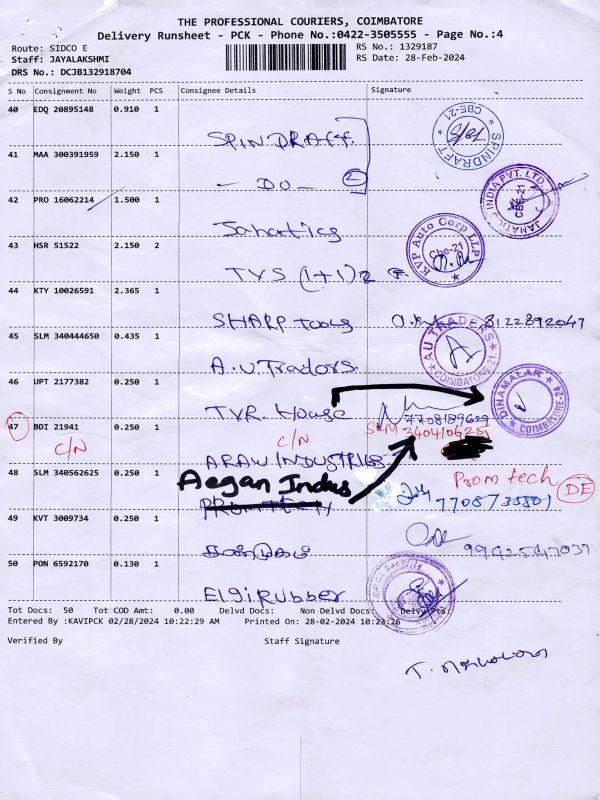 THE PROFESSIONAL COURIERS, COIMBATORE
Delivery Runsheet - PCK - Phone No.:0422-3505555 - Page No.:4
Route: SIDCO E
RS No.: 1329187
Staff: JAYALAKSHMI
RS Date: 28-Feb-2024
DRS No.: DCJB132918704
S No Consignment No Weight PCS Consignee Details Signature
40 EDQ 20895148 0.910 1
SPINDRAFT.
SPINDRAFT CBE-21
41 MAA 300391959 2.150 1
- DO - 2
42 PRO 16062214 1.500 1
JANATICS INDIA PVT. LTD. CBE-21
Janatics
43 HSR 51522 2.150 2
KVP Auto Corp LLP Cbe-21
TVS (1+1) 2
44 KTY 10026591 2.365 1
SHARP tools
8122892047
45 SLM 340444650 0.435 1
A.U.Tradors.
AU TRADERS COIMBATORE-21
46 UPT 2177382 0.250 1
DINAMALAR COIMBATORE-24
TVR. House
7708189629
47 BDI 21941 0.250 1
C/N C/N SLM 340410625
ARAV INDUSTRIES
48 SLM 340562625 0.250 1
Aegan Indus
Prom tech DE
PROMTECH
49 KVT 3009734 0.250 1
9942547039
50 PON 6592170 0.130 1
Elgi Rubber
Tot Docs: 50 Tot COD Amt: 0.00 Delvd Docs: Non Delvd Docs: Delvy Pts:
Entered By :KAVIPCK 02/28/2024 10:22:29 AM Printed On: 28-02-2024 10:23:26
Verified By Staff Signature